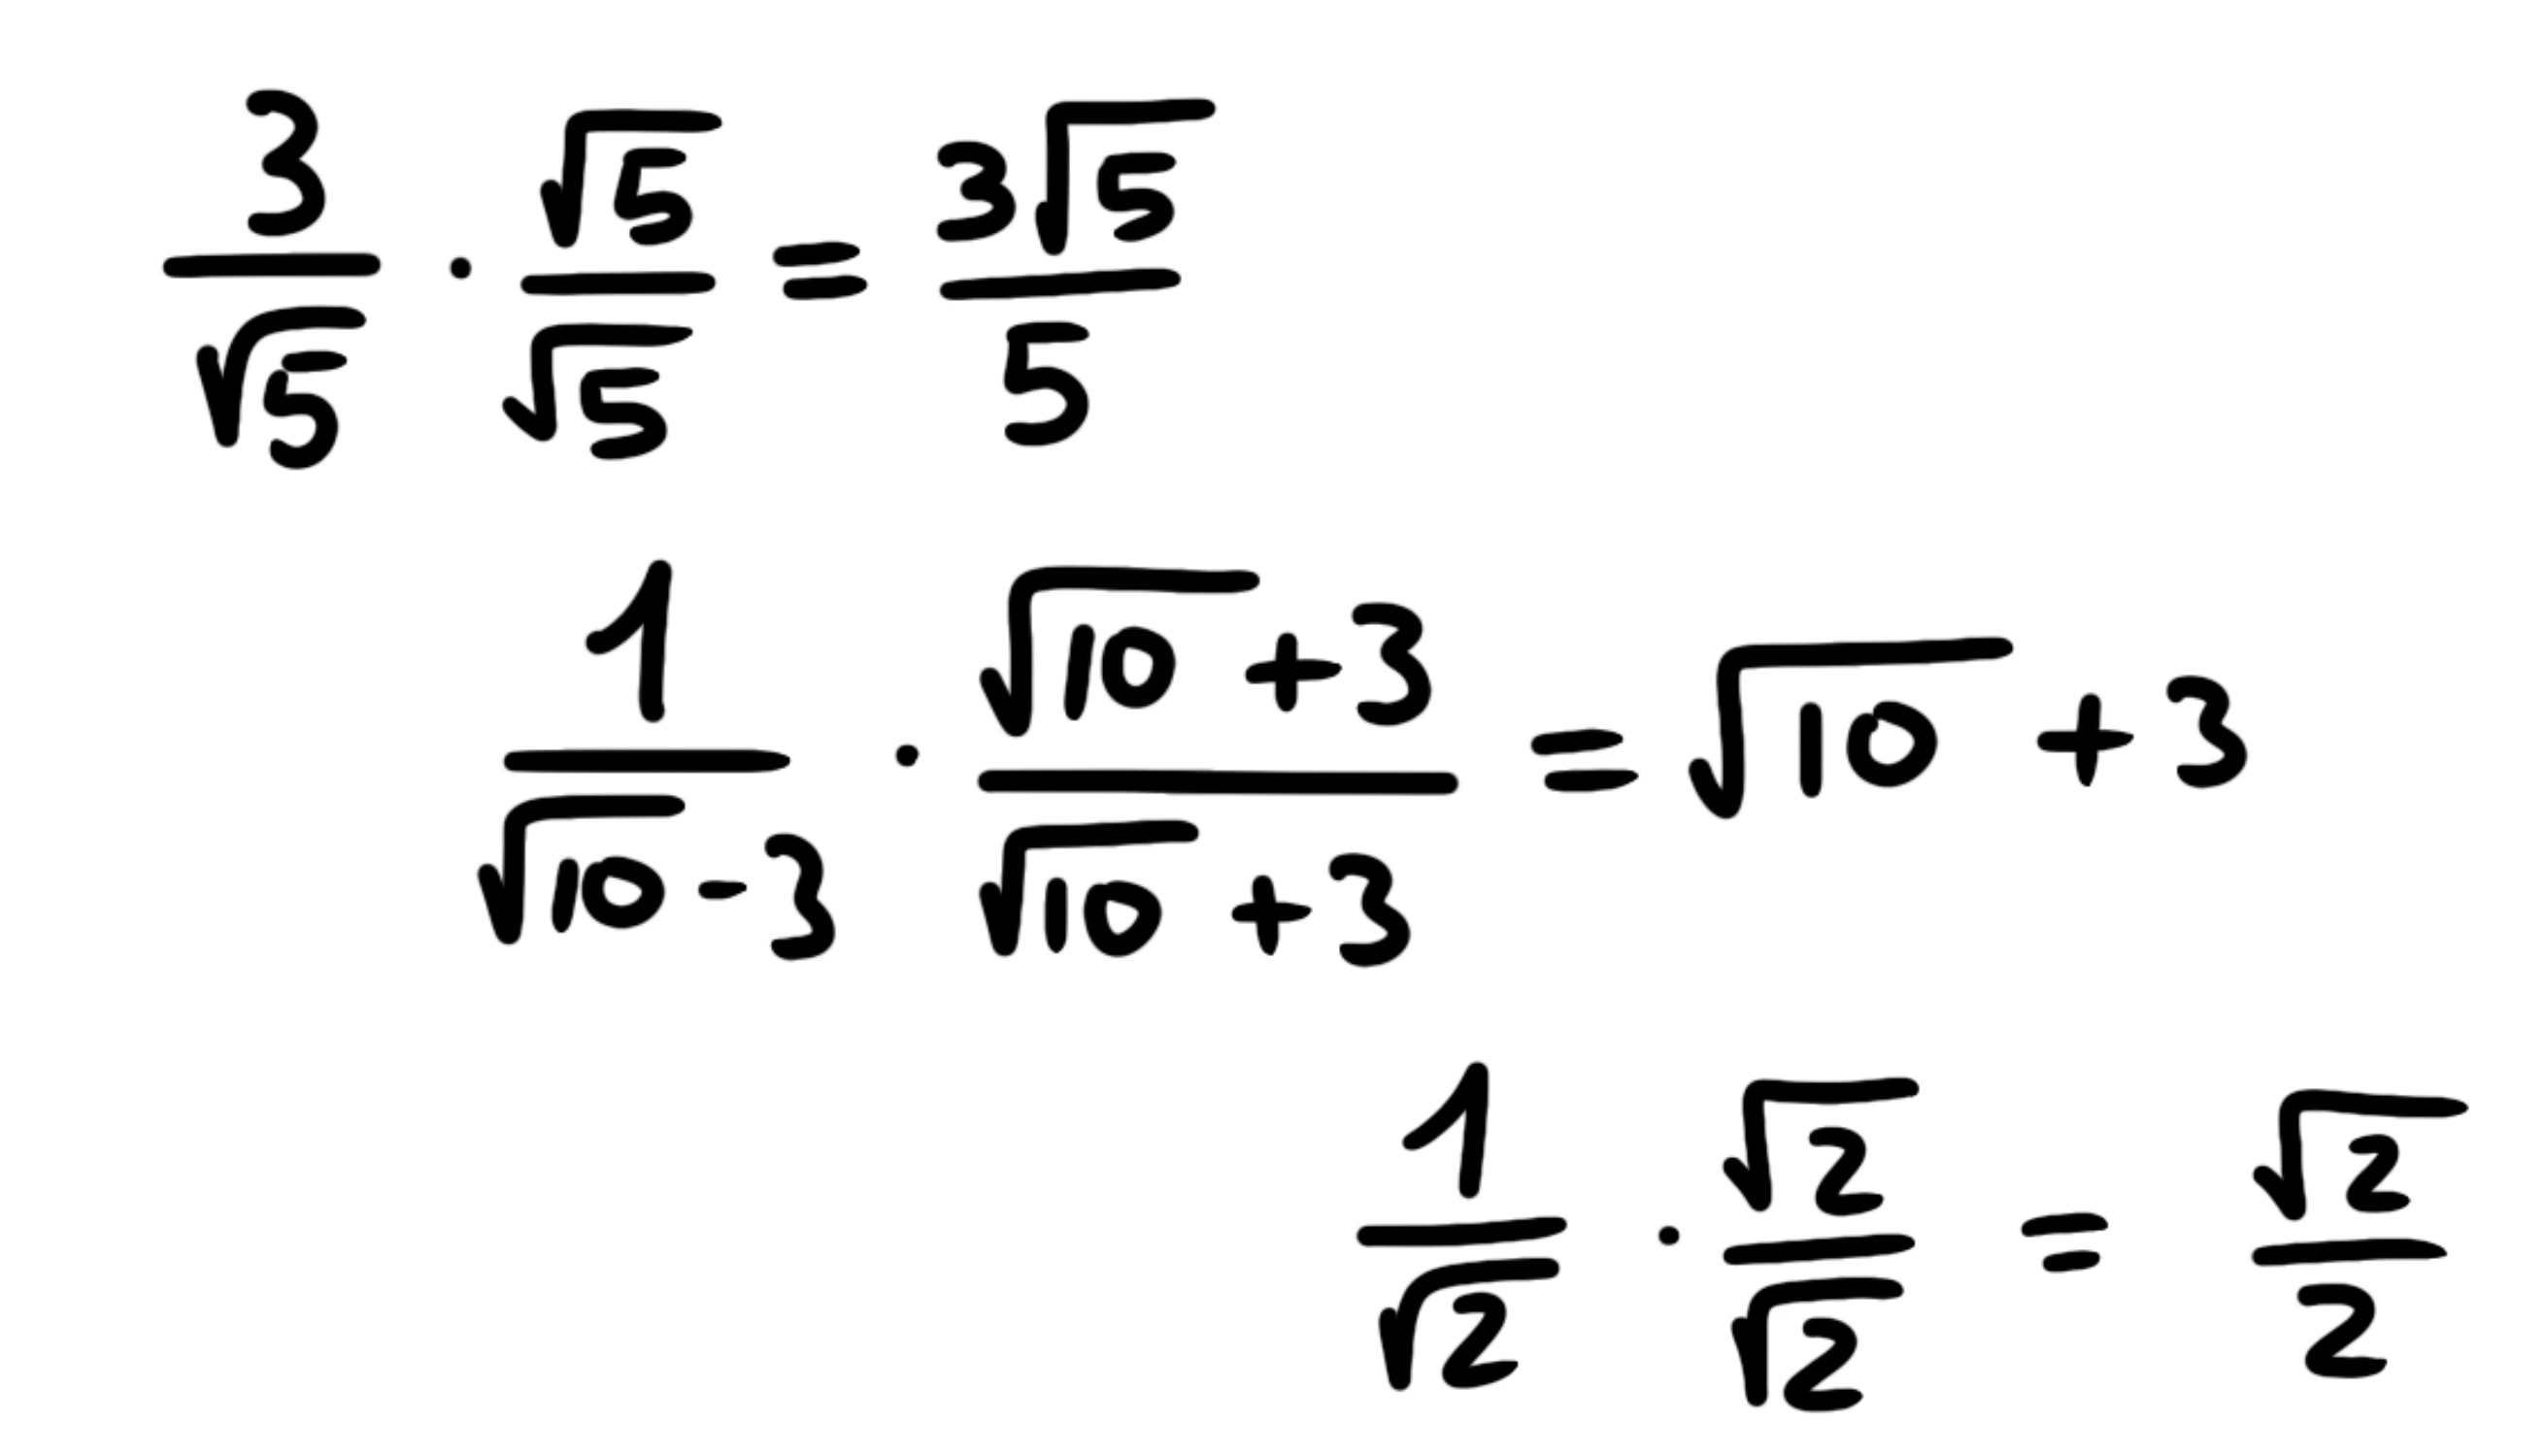 3/√5 · √5/√5 = 3√5/5
1/(√10 - 3) · (√10 + 3)/(√10 + 3) = √10 + 3
1/√2 · √2/√2 = √2/2